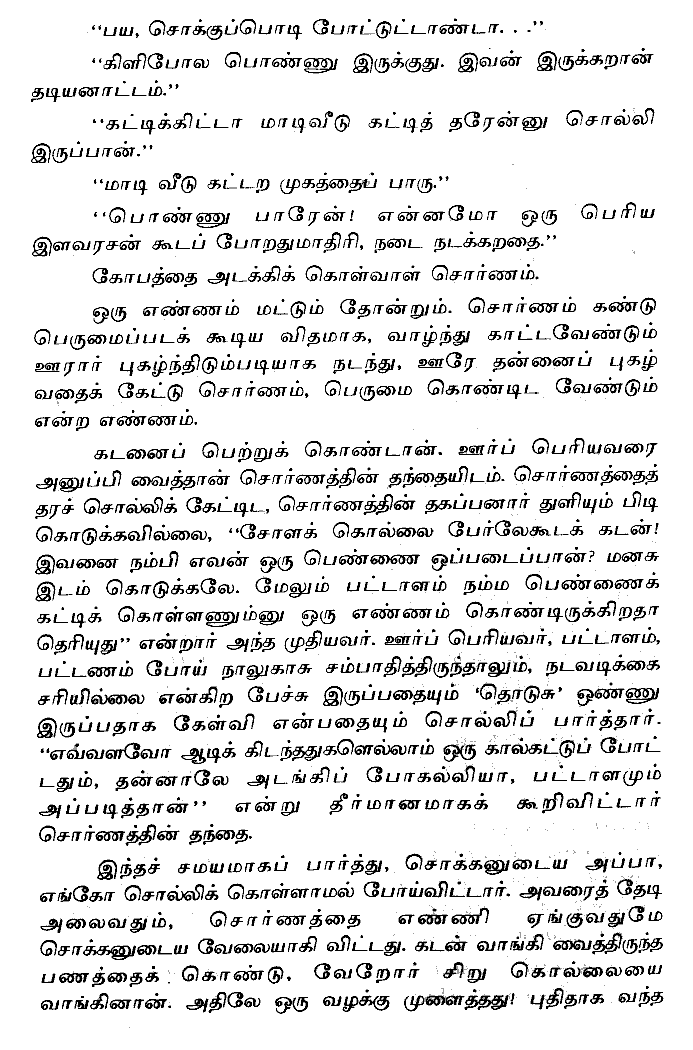 “பய, சொக்குப்பொடி போட்டுட்டாண்டா. . .”
“கிளிபோல பொண்ணு இருக்குது. இவன் இருக்கறான்
தடியனாட்டம்.”
“கட்டிக்கிட்டா மாடிவீடு கட்டித் தரேன்னு சொல்லி
இருப்பான்.”
“மாடி வீடு கட்டற முகத்தைப் பாரு.”
“பொண்ணு பாரேன்! என்னமோ ஒரு பெரிய
இளவரசன் கூடப் போறதுமாதிரி, நடை நடக்கறதை.”
கோபத்தை அடக்கிக் கொள்வாள் சொர்ணம்.
ஒரு எண்ணம் மட்டும் தோன்றும். சொர்ணம் கண்டு
பெருமைப்படக் கூடிய விதமாக, வாழ்ந்து காட்டவேண்டும்
ஊரார் புகழ்ந்திடும்படியாக நடந்து, ஊரே தன்னைப் புகழ்
வதைக் கேட்டு சொர்ணம், பெருமை கொண்டிட வேண்டும்
என்ற எண்ணம்.
கடனைப் பெற்றுக் கொண்டான். ஊர்ப் பெரியவரை
அனுப்பி வைத்தான் சொர்ணத்தின் தந்தையிடம். சொர்ணத்தைத்
தரச் சொல்லிக் கேட்டிட, சொர்ணத்தின் தகப்பனார் துளியும் பிடி
கொடுக்கவில்லை, “சோளக் கொல்லை பேர்லேகூடக் கடன்!
இவனை நம்பி எவன் ஒரு பெண்ணை ஒப்படைப்பான்? மனசு
இடம் கொடுக்கலே. மேலும் பட்டாளம் நம்ம பெண்ணைக்
கட்டிக் கொள்ளணும்னு ஒரு எண்ணம் கொண்டிருக்கிறதா
தெரியுது” என்றார் அந்த முதியவர். ஊர்ப் பெரியவர், பட்டாளம்,
பட்டணம் போய் நாலுகாசு சம்பாதித்திருந்தாலும், நடவடிக்கை
சரியில்லை என்கிற பேச்சு இருப்பதையும் ‘தொடுசு’ ஒண்ணு
இருப்பதாக கேள்வி என்பதையும் சொல்லிப் பார்த்தார்.
“எவ்வளவோ ஆடிக் கிடந்ததுகளெல்லாம் ஒரு கால்கட்டுப் போட்
டதும், தன்னாலே அடங்கிப் போகல்லியா, பட்டாளமும்
அப்படித்தான்” என்று தீர்மானமாகக் கூறிவிட்டார்
சொர்ணத்தின் தந்தை.
இந்தச் சமயமாகப் பார்த்து, சொக்கனுடைய அப்பா,
எங்கோ சொல்லிக் கொள்ளாமல் போய்விட்டார். அவரைத் தேடி
அலைவதும், சொர்ணத்தை எண்ணி ஏங்குவதுமே
சொக்கனுடைய வேலையாகி விட்டது. கடன் வாங்கி வைத்திருந்த
பணத்தைக் கொண்டு, வேறோர் சிறு கொல்லையை
வாங்கினான். அதிலே ஒரு வழக்கு முளைத்தது! புதிதாக வந்த